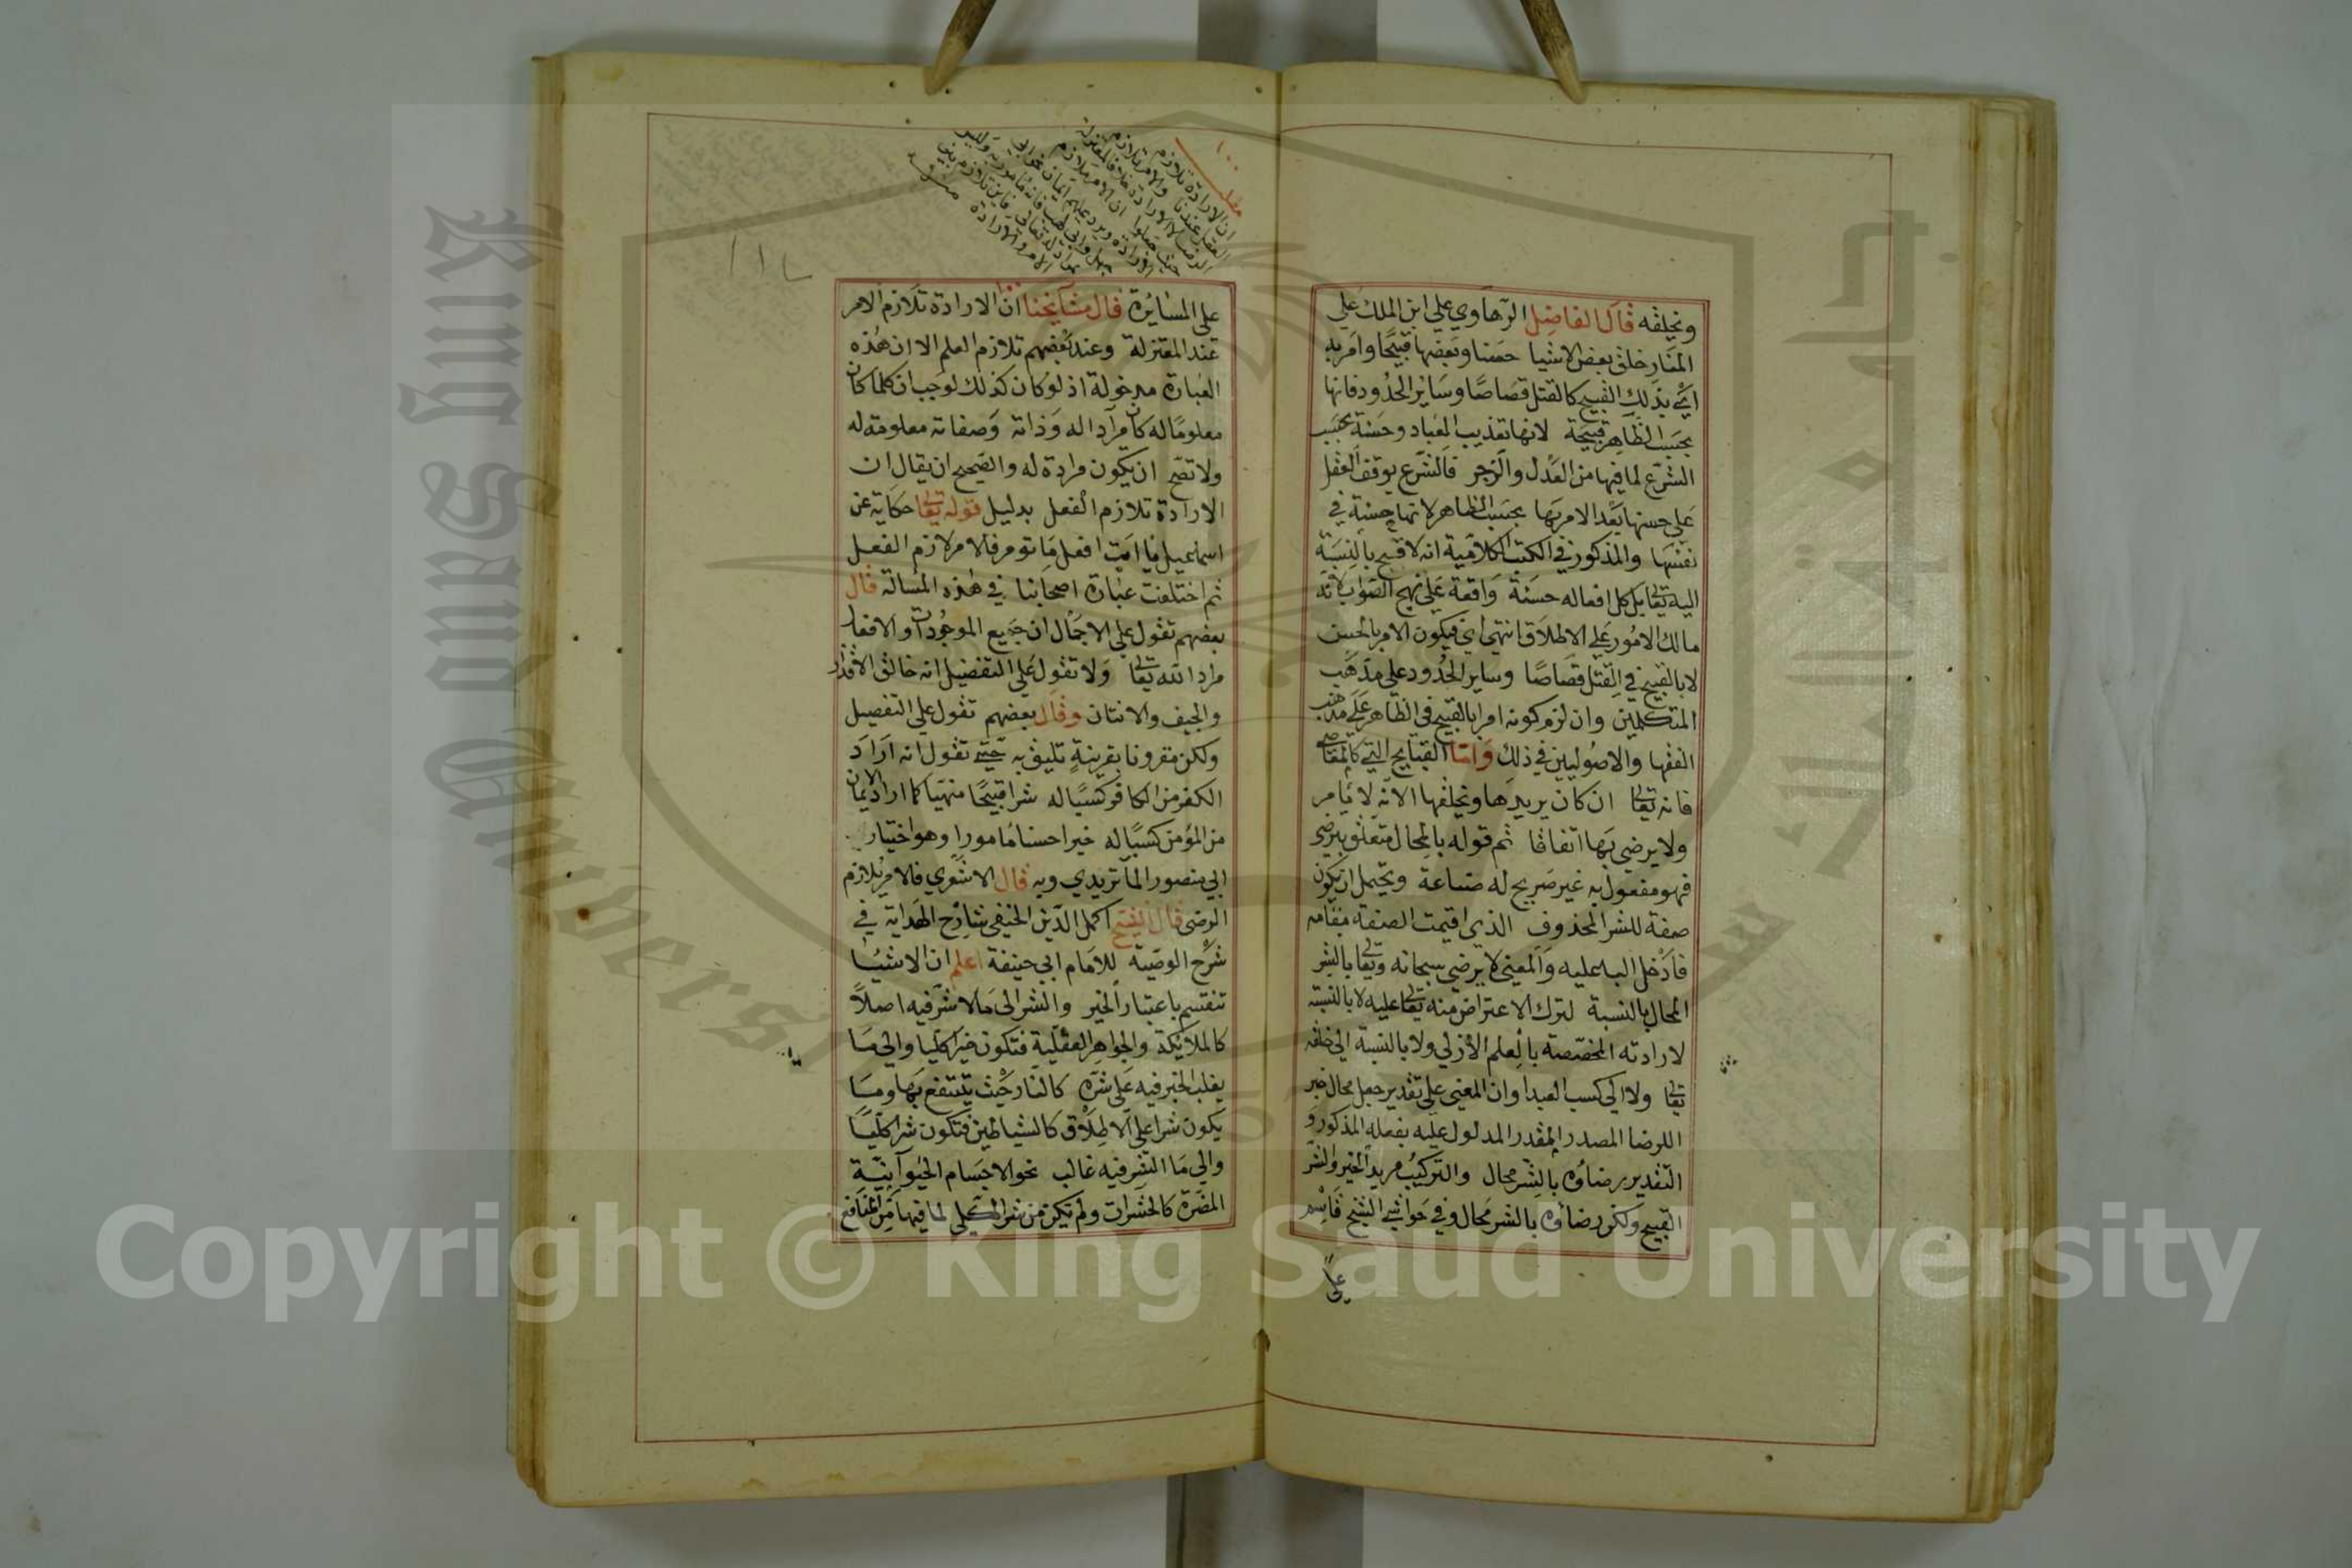 ويخلقه قال الفاضل الرهاوي علي ابن الملك علي
المنار خلق بعض الاشيا حسنا وبعضها قبيحا وامر به
اي بذلك القبيح كالقتل قصاصا وساير الحدود فانها
بحسب الظاهر قبيحة لانها تعذيب العباد وحسنة بحسب
الشرع لما فيها من العدل والزجر فالشرع يوقف العقل
علي حسنها بعد الامر بها بحسب الظاهر لا نها حسنة في
نفسها والمذكور في الكتب الكلامية انه لا قبح بالنسبة
اليه تعالى بل كل افعاله حسنة واقعة علي نهج الصواب لانه
مالك الامور علي الاطلاق انتهي اي فيكون الامر بالحسن
لا بالقبيح في القتل قصاصا وساير الحدود علي مذهب
المتكلمين وان لزم كونه امرا بالقبيح في الظاهر علي مذهب
الفقها والاصوليين في ذلك واما القبايح التي كالمعاصي
فانه تعالى ان كان يريدها ويخلقها الا انه لا يامر
ولا يرضي بها اتفاقا ثم قوله بالمحال متعلق بيرضي
فهو مفعول به غير صريح له صناعة ويحتمل ان يكون
صفة للشر المحذوف الذي اقيمت الصفة مقامه
فادخل البا عليه والمعني لا يرضي سبحانه وتعالى بالشر
المحال بالنسبة لترك الاعتراض منه تعالى عليه لا بالنسبة
لارادته المخصصة بالعلم الازلي ولا بالنسبة الي خلقه
تعالى ولا الي كسب العبد او ان المعني علي تقدير جعل محال خبر
اللرضا المصدر المقدر المدلول عليه بفعله المذكور و
التقدير رضاؤه بالشر محال والتركيب مريد الخير والشر
القبيح ولكن رضاؤه بالشر محال وفي حواشي الشيخ قاسم
علي
مطلب
ان الارادة تلازم
الفعل عندنا والامر تلازم
الرضا لا الارادة خلافا للمعتزلة
حيث جعلوا ان الامر ملازم
الارادة ويرد عليهم ايمان نحو ابي
جهل وابي لهب فانه مامور به وليس
مراد له تعالى فاين تلازم بين
الامر والارادة
علي المسايرة قال مشايخنا ان الارادة تلازم الامر
عند المعتزلة وعند بعضهم تلازم العلم الا ان هذه
العبارة مدخولة اذ لو كان كذلك لوجب ان كلما كان
معلوما له كان مرادا له وذاته وصفاته معلومة له
ولا تصح ان يكون مرادة له والصحيح ان يقال ان
الارادة تلازم الفعل بدليل قوله تعالى حكاية عن
اسماعيل يا ابت افعل ما تومر فالامر لازم الفعل
ثم اختلفت عبارة اصحابنا في هذه المسالة قال
بعضهم تقول علي الاجمال ان جميع الموجودات والافعال
مراد الله تعالى ولا تقول علي التفضيل انه خالق الاقذار
والجيف والانتان وقال بعضهم تقول علي التفصيل
ولكن مقرونا بقرينة تليق به حتي تقول انه اراد
الكفر من الكافر كسبا له شرا قبيحا منهيا كما اراد الايمان
من المؤمن كسبا له خيرا حسنا مامورا وهو اختيار
ابي منصور الماتريدي وبه قال الاشعري فالامر تلازم
الرضي قال الشيخ اكمل الدين الحنيفي شارح الهداية في
شرح الوصية للامام ابي حنيفة اعلم ان الاشيا
تنقسم باعتبار الخير والشر الى ما لا شر فيه اصلا
كالملائكة والجواهر العقلية فتكون خيرا كليا والي ما
يغلب الخير فيه علي شره كالنار حيث ينتفع بها وما
يكون شرا علي الاطلاق كالشياطين فتكون شرا كليا
والي ما الشر فيه غالب نحو الاجسام الحيوانية
المضرة كالحشرات ولم تكن من شر الكلي لما فيها من المنافع
King Saud University
Copyright © King Saud University